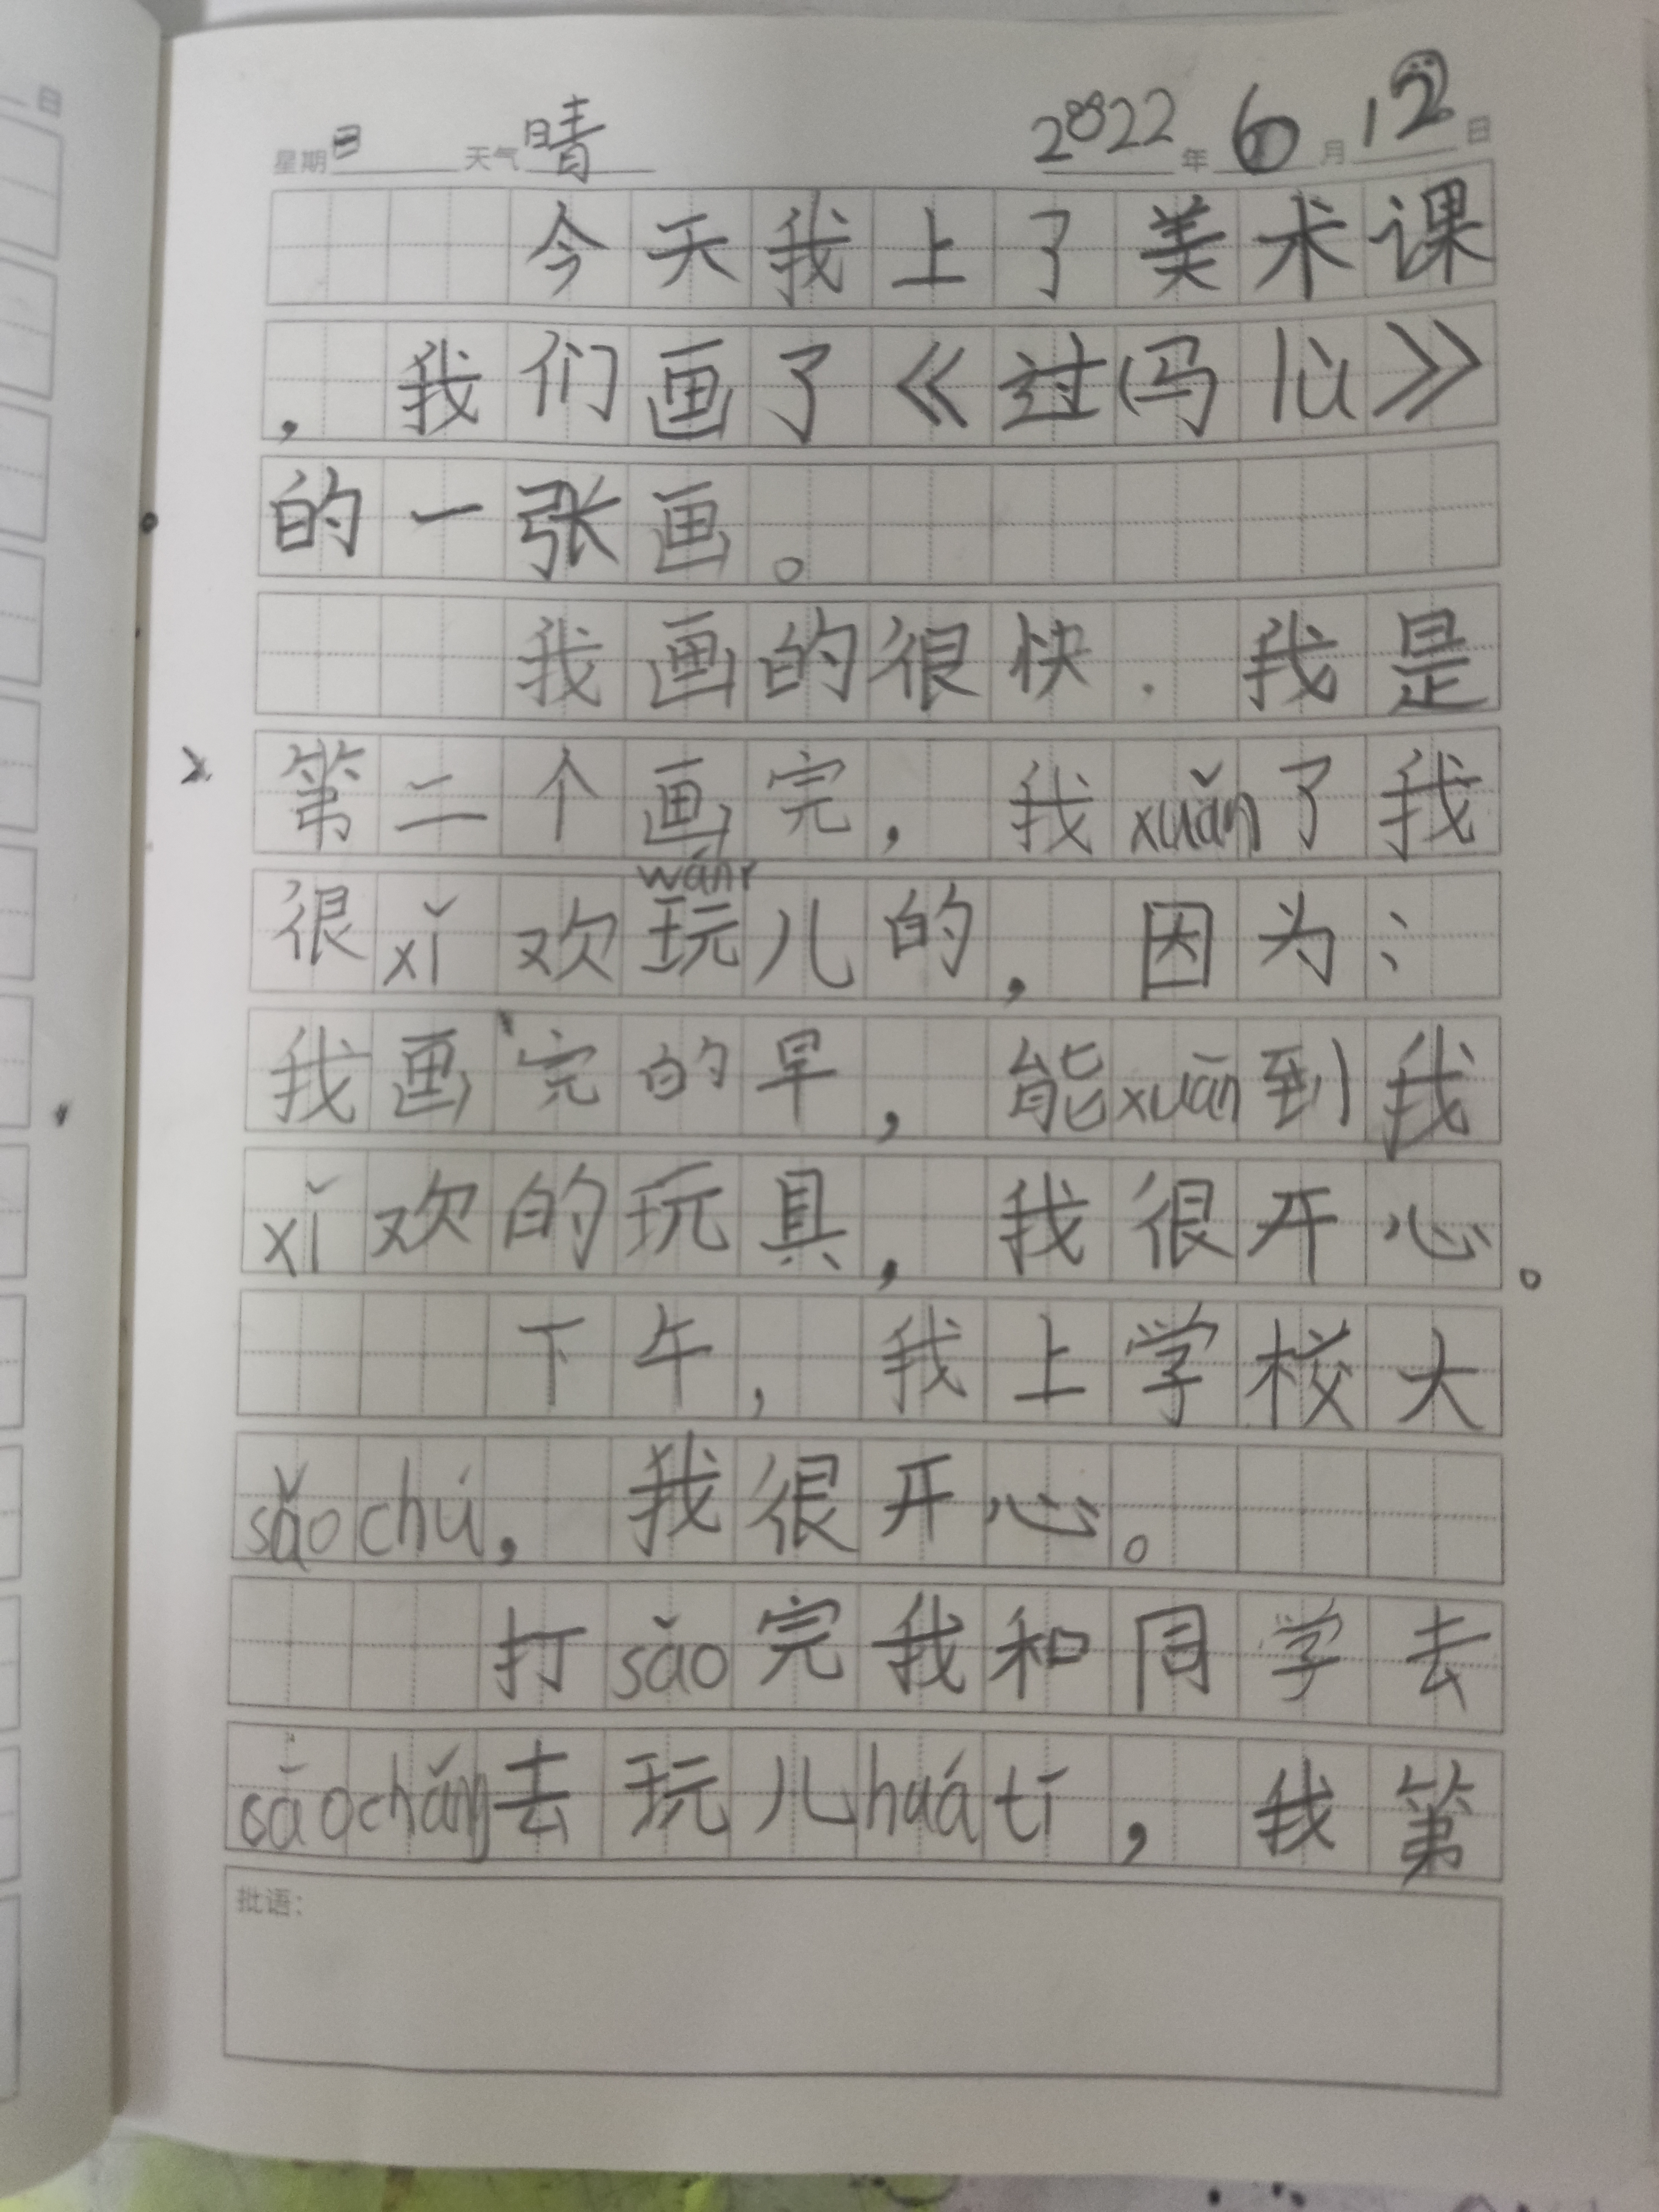 日
星期日 天气晴 2022年6月12日
今天我上了美术课
，我们画了《过马lù》
的一张画。
我画的很快．我是
第二个画完，我xuǎn了我
wánr
很xǐ欢玩儿的，因为：
我画完的早，能xuān到我
xǐ欢的玩具，我很开心。
下午，我上学校大
sǎochú，我很开心。
打sǎo完我和同学去
cāochǎng去玩儿huátī，我第
批语：